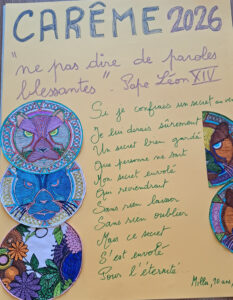 CARÊME 2026
"ne pas dire de paroles
blessantes". Pape Léon XIV
Si je confiais un secret au
Je leur dirais sûrement
Un secret bien gardé
Que personne ne sait
Mon secret envolé
Qui reviendrait
Sans rien laisser
Sans rien oublier
Mais ce secret
S'est envolé
Pour l'éternité
10 ans,